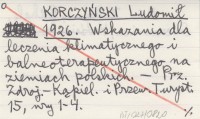 KORCZYŃSKI Ludomił
1926. Wskazania dla
leczenia klimatycznego i
balneoterapeutycznego na
ziemiach polskich. — Prz.
Zdroj-Kąpiel. i Przew. Turyst.
15, nry 1-4.